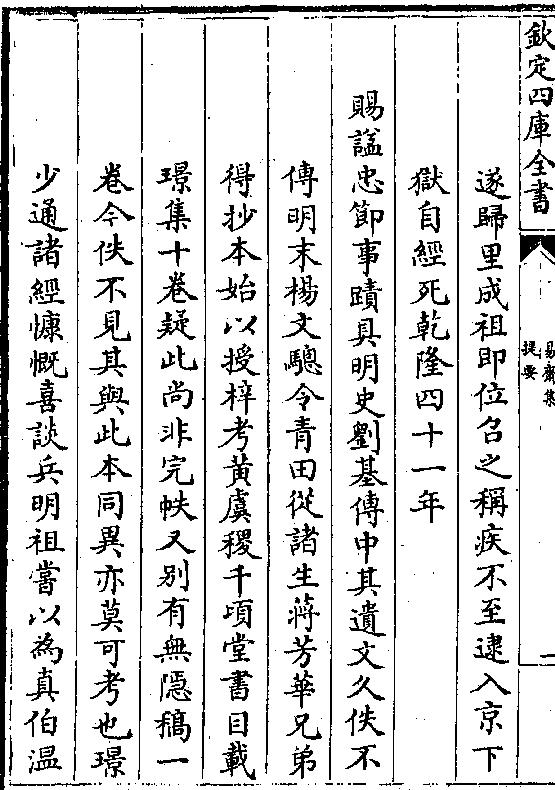 欽定四庫全書
易齋集
提要
一
遂歸里成祖即位召之稱疾不至逮入京下
獄自經死乾隆四十一年
賜諡忠節事蹟具明史劉基傳中其遺文久佚不
傳明末楊文驄令青田從諸生蔣芳華兄弟
得抄本始以授梓考黃虞稷千項堂書目載
璟集十卷疑此尚非完帙又别有無隱稿一
卷今佚不見其與此本同異亦莫可考也璟
少通諸經慷慨喜談兵明祖嘗以為真伯温